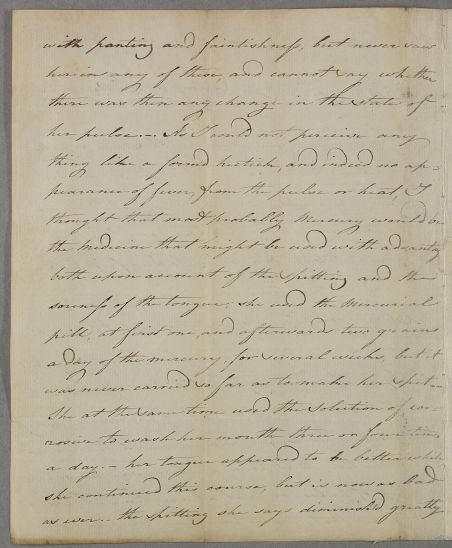 with panting and faintishness, but never saw
her in any of these, and cannot say whether
there was then any change in the state of
her pulse. – As I could not perceive any
thing like a form'd hectick, and indeed no ap=
pearance of fever, from the pulse or heat, I
thought that most probably Mercury would be
the medicine that might be used with advantage
both upon account of the spitting and the
soreness of the tongue; she used the Mercurial
pill, at first one, and afterwards two grains
a day of the mercury, for several weeks, but it
was never carried so far as to make her spit –
She at the same time used the solution of cor=
rosive to wash her mouth three or four times
a day. – her tongue appeared to be better while
she continued this course, but is now as bad
as ever. – the spitting she says diminish'd greatly